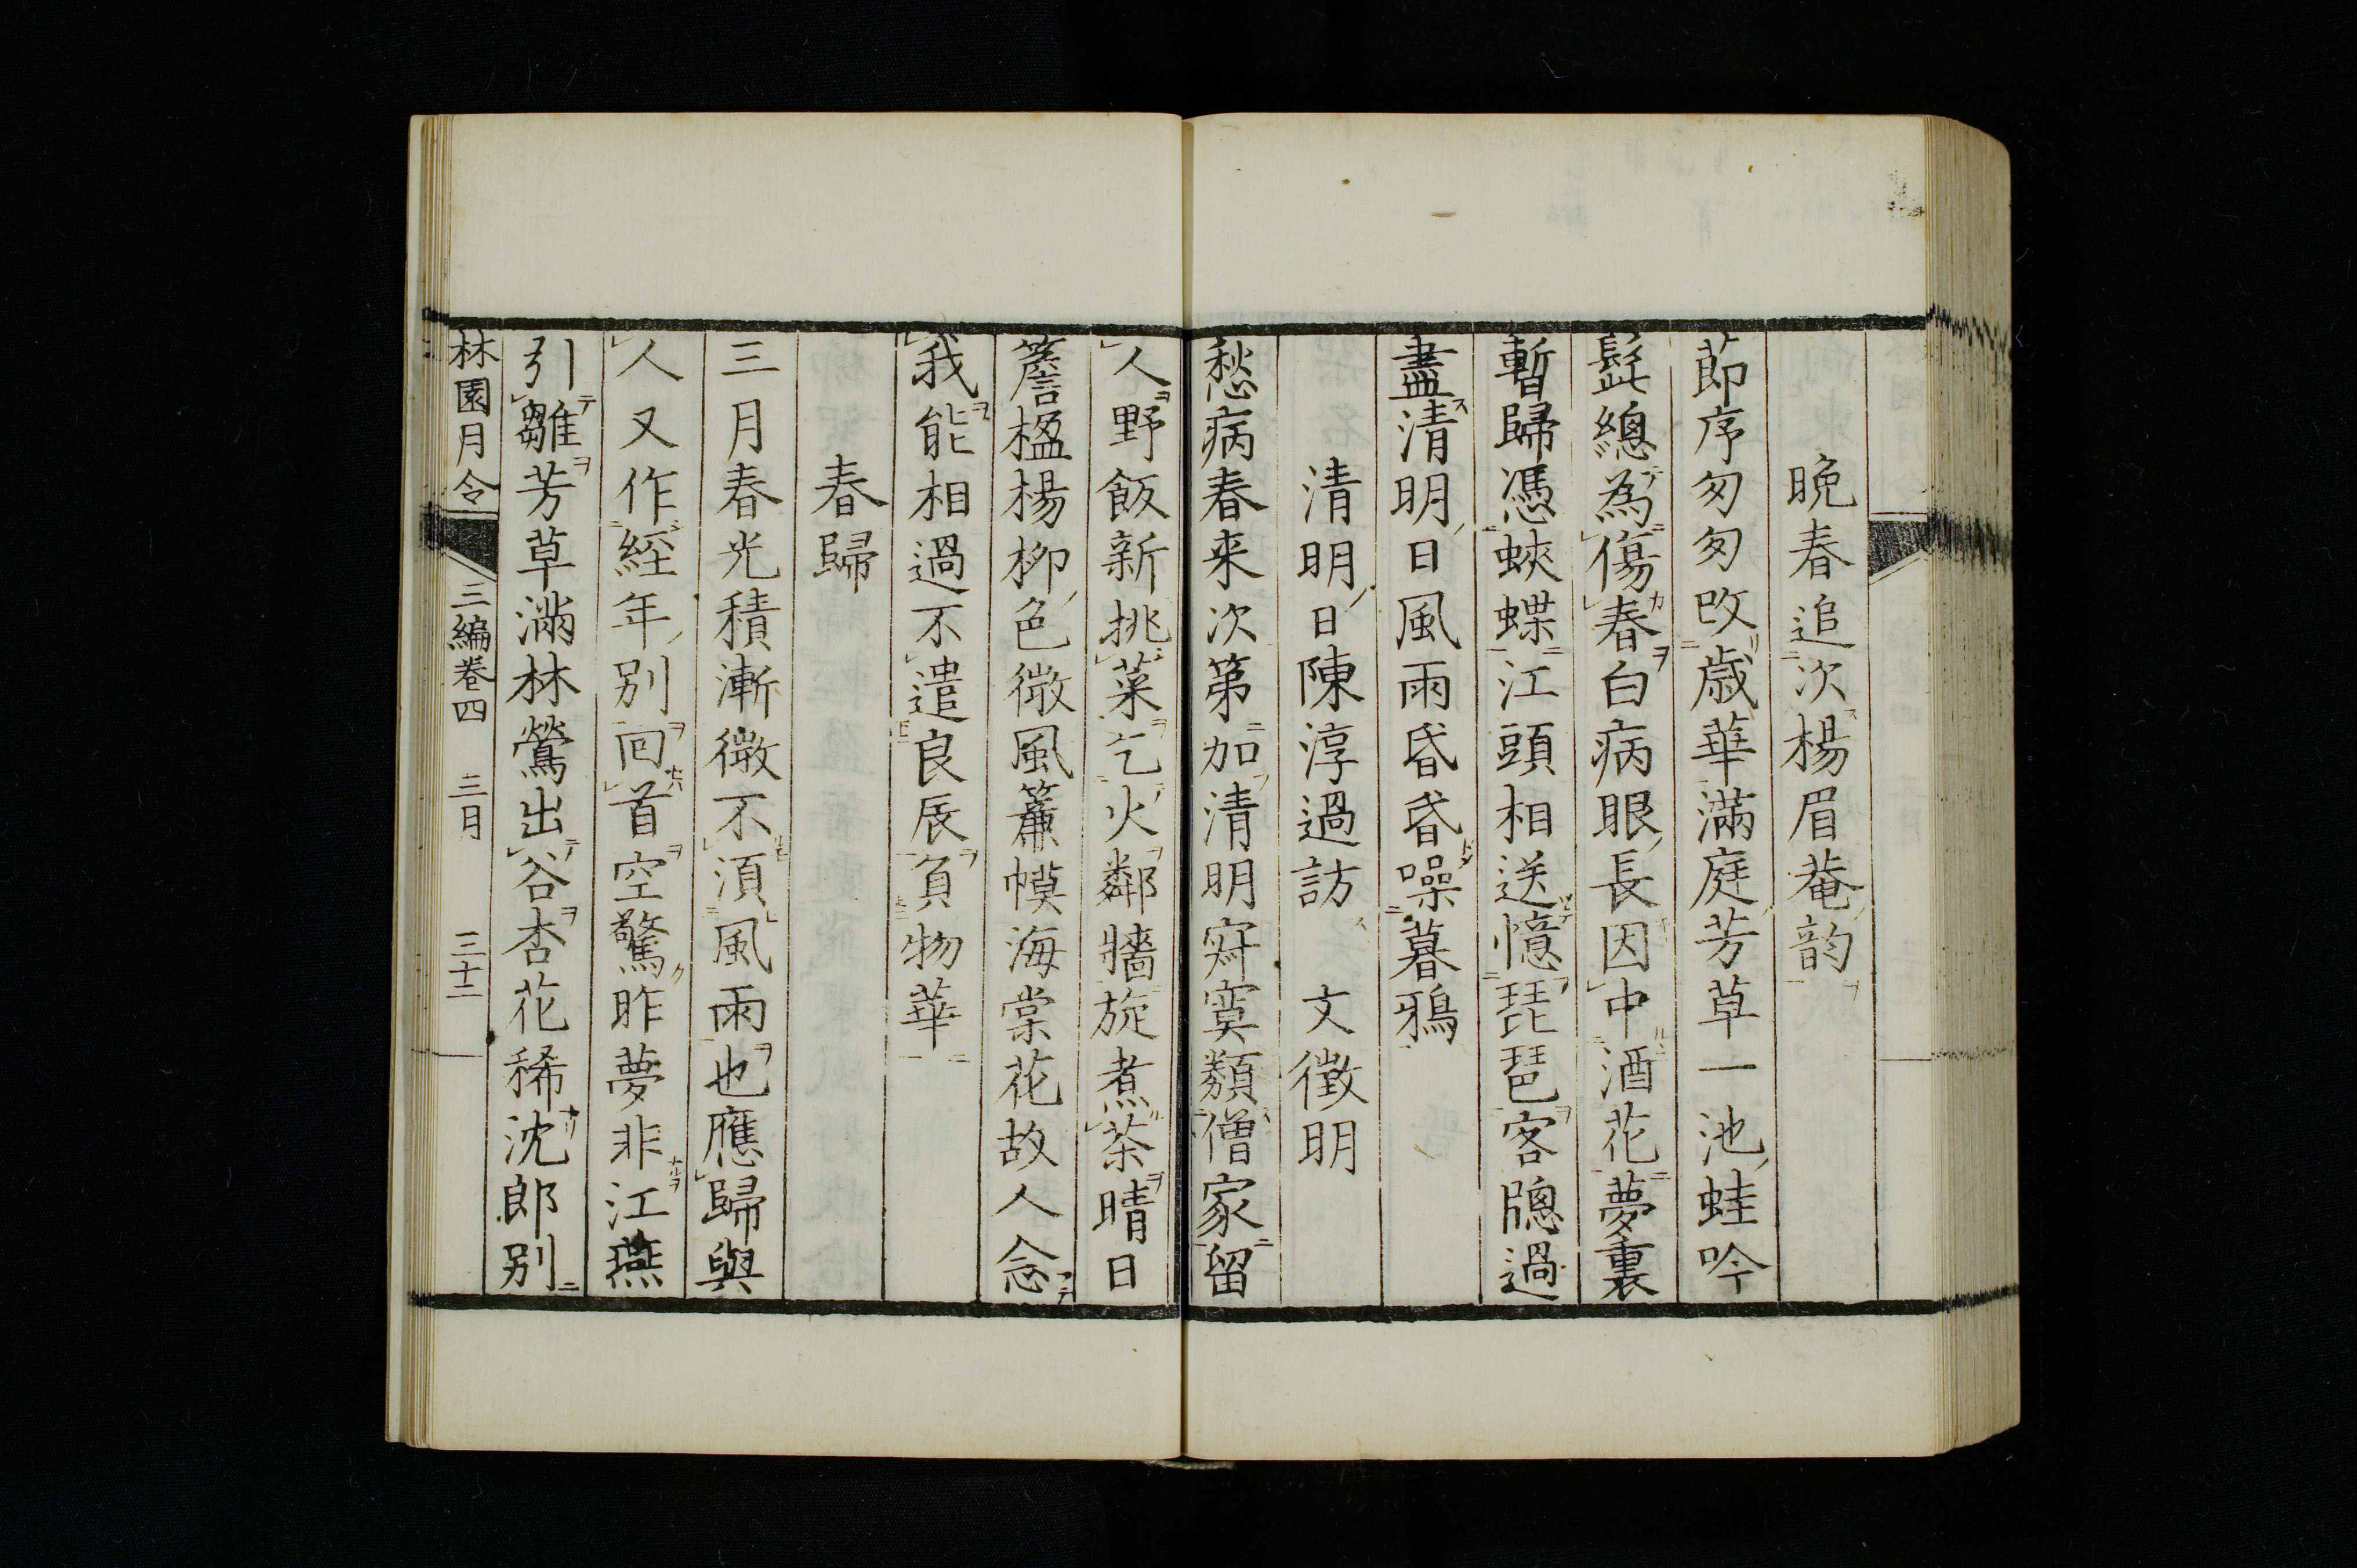 晩春追次楊眉菴韵
節序匆匆改歳華滿庭芳草一池蛙吟
髭總為傷春白病眼長因中酒花夢裏
暫歸憑蛺蝶江頭相送憶琵琶客牕過
盡清明日風雨昏昏噪暮鴉
清明日陳淳過訪　文徵明
愁病春来次第加清明寂寞類僧家留
人野飯新挑菜乞火鄰牆旋煮茶晴日
簷楹楊柳色微風簾幙海棠花故人念
我能相過不遣良辰負物華
春歸
三月春光積漸微不須風雨也應歸與
人又作經年別回首空驚昨夢非江燕
引雛芳草滿林鶯出谷杏花稀沈郎別
林園月令　三編卷四　三月　三十二